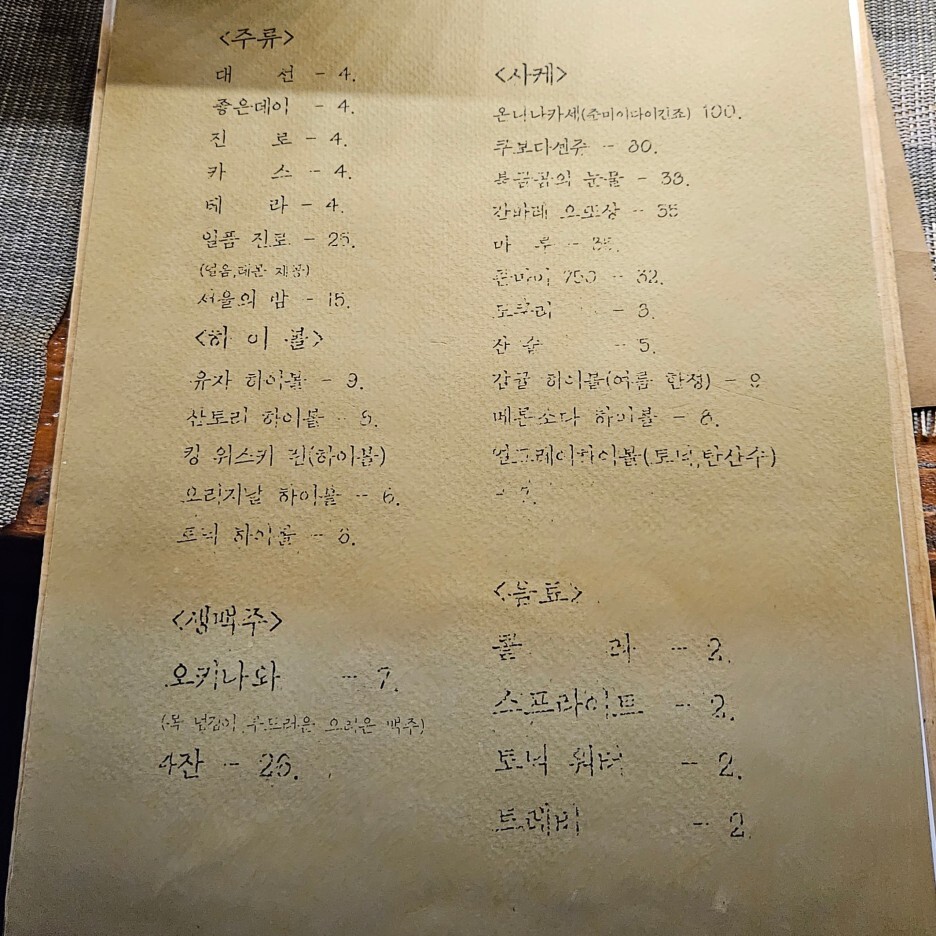 <주류>
대 선 - 4.
좋은데이 - 4.
진 로 - 4.
카 스 - 4.
테 라 - 4.
일품 진로 - 25.
(얼음,레몬 제공)
서울의 밤 - 15.
<하 이 볼>
유자 하이볼 - 9.
산토리 하이볼 -
킹 위스키 진(하이볼)
오리지날 하이볼 - 6.
토닉 하이볼 -
<생맥주>
오키나와 - 7.
(목 넘김이 부드러운 맥주)
4잔 - 26.
<사케>
온나나카세(준마이다이긴죠) 100.
쿠보다센쥬 - 80.
의 눈물 - 33.
간바레 오또상 - 35
마 루 - 35.
준마이 750 - 32.
도쿠리 -
산 - 5.
감귤 하이볼(여름 한정) - 9
메론소다 하이볼 - 8.
얼그레이하이볼(토닉,탄산수)
- 7.
<음료>
콜 라 - 2.
스프라이트 - 2.
토닉 워터 - 2.
트레비 - 2.